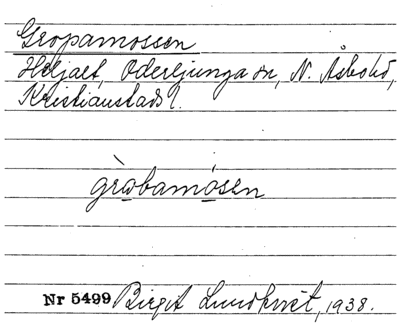 Gropamossen
Heljalt, Oderljunga sn, N. Åsbo hd,
Kristianstads l.
gròbamósen
Nr 5499 Birgit Lundkvist, 1938.